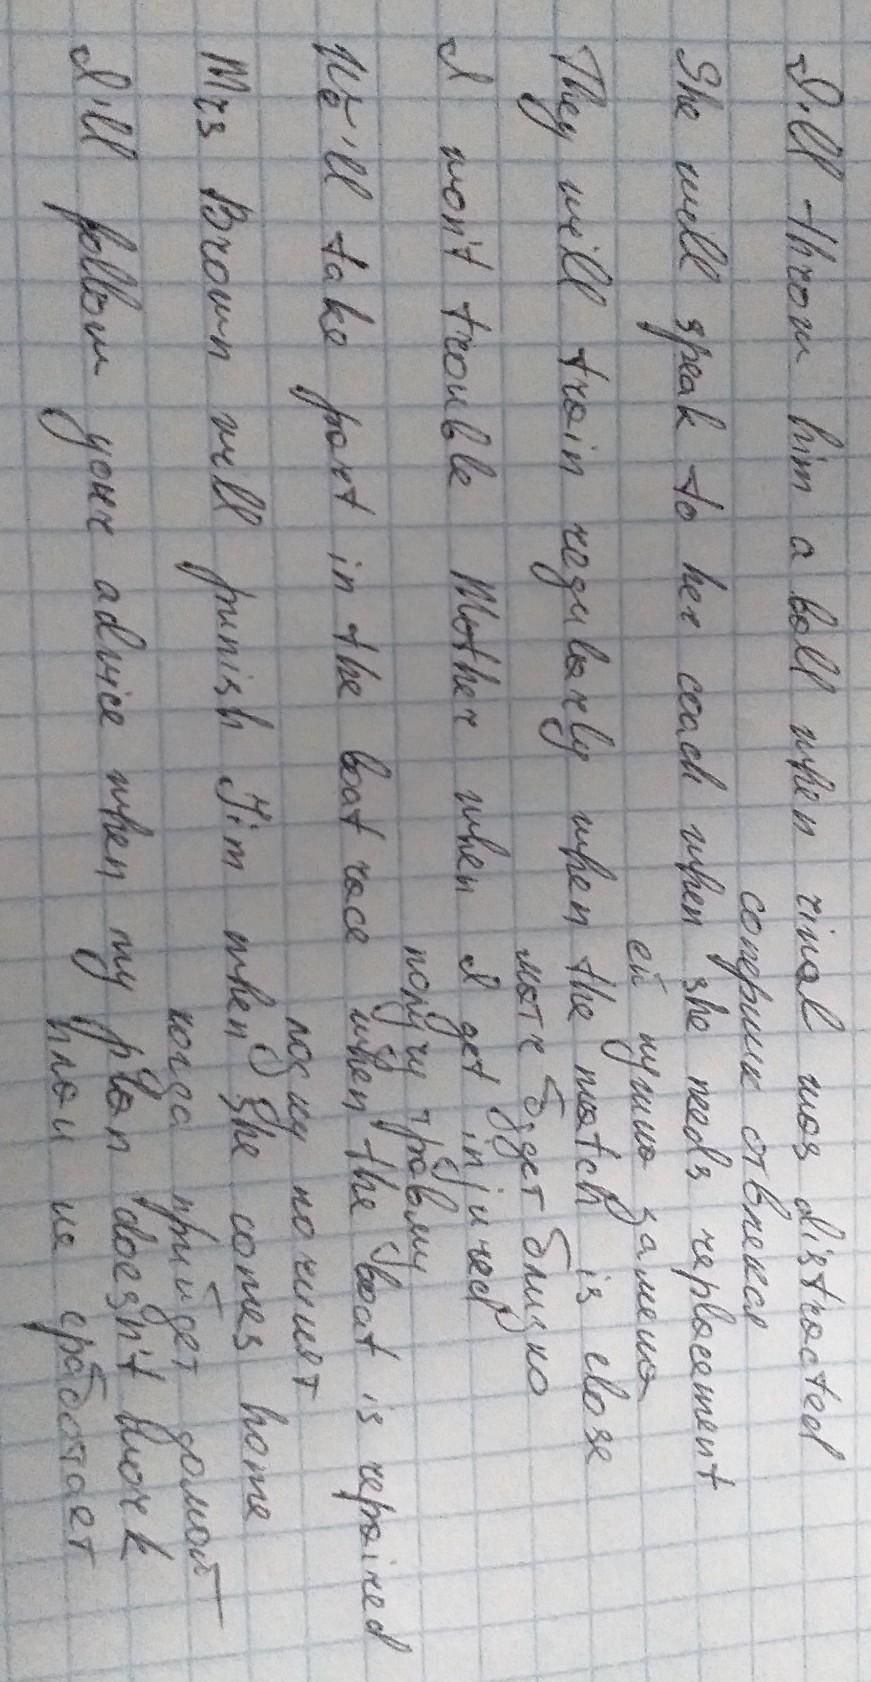 I'll throw him a ball when rival was distracted
соперник отвлекся
She will speak to her coach when she needs replacement
ей нужна замена
They will train regularly when the match is close
матч будет близко
I won't trouble Mother when I get injured
получу травму
We'll take part in the boat race when the boat is repaired
лодку починят
Mrs Brown will punish Jim when she comes home
когда прийдет домой
I'll follow your advice when my plan doesn't work
план не сработает